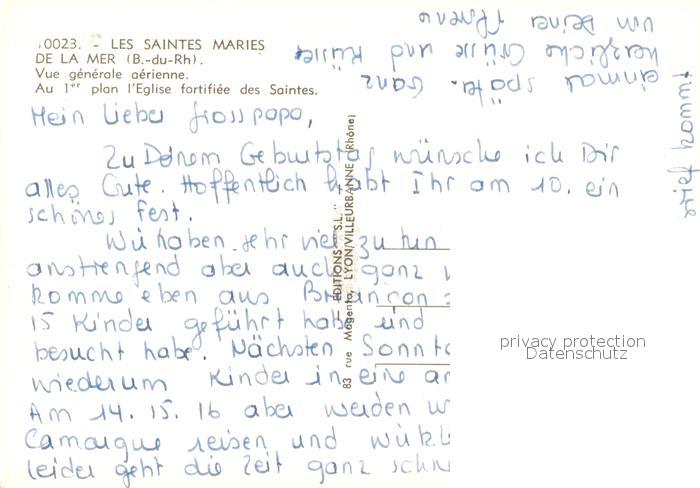 10023. - LES SAINTES MARIES
DE LA MER (B.-du-Rh).
Vue générale aérienne.
Au 1er plan l'Eglise fortifiée des Saintes.
Mein lieber Grosspapa,
Zu Deinem Geburtstag wünsche ich Dir
alles Gute. Hoffentlich habt Ihr am 10. ein
schönes Fest.
Wir haben sehr viel zu tun
anstrengend aber auch ganz
komme eben aus Briançon
15 Kinder geführt habe und
besucht habe. Nächsten Sonnta
wiederum Kinder in eine an
Am 14. 15. 16 aber werden w
Camargue reisen und wirkl
leider geht die Zeit ganz schne
kommt
einmal später. Ganz
herzliche Grüsse und Küsse
von Deiner
EDITIONS "S.L."
83 rue Magenta, LYON/VILLEURBANNE (Rhône)
privacy protection
Datenschutz